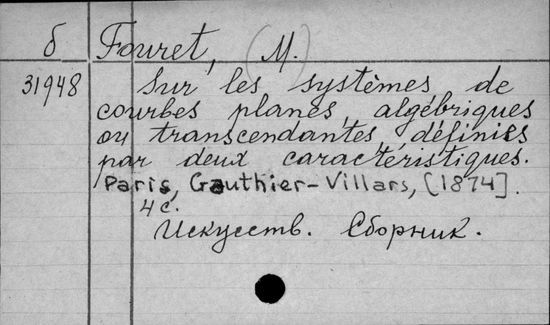 б Fouret, (M.)
31948 Sur les systèmes de
courbes planes, algébriques
ou transcendantes, définies
par deux caractéristiques.
Paris, Gauthier-Villars, [1874].
4 с.
Искусств. Сборник.